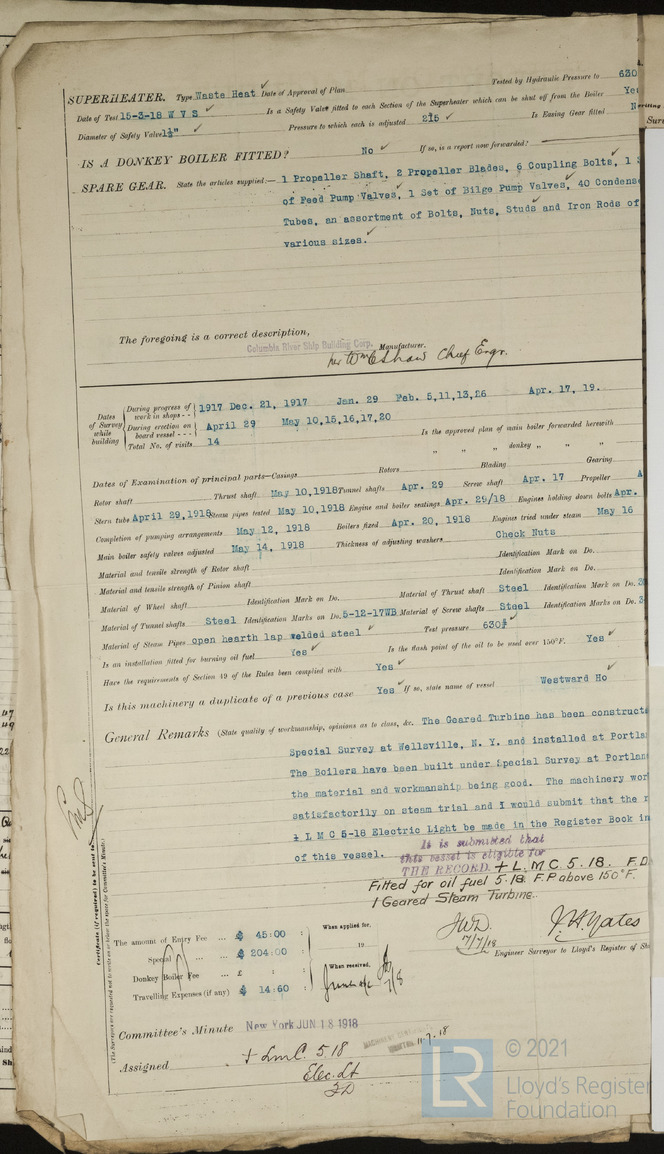 SUPERHEATER. Type Waste Heat Date of Approval of Plan Tested by Hydraulic Pressure to 630
Date of Test 15-3-18 W V S Is a Safety Valve fitted to each Section of the Superheater which can be shut off from the Boiler Yes
Diameter of Safety Valve 1½" Pressure to which each is adjusted 215 Is Easing Gear fitted
IS A DONKEY BOILER FITTED? No If so, is a report now forwarded?
SPARE GEAR. State the articles supplied:— 1 Propeller Shaft, 2 Propeller Blades, 6 Coupling Bolts, 1 S
of Feed Pump Valves, 1 Set of Bilge Pump Valves, 40 Condense
Tubes, an assortment of Bolts, Nuts, Studs and Iron Rods of
various sizes.
The foregoing is a correct description,
Columbia River Ship Building Corp. Manufacturer.
per Wm E Shaw Chief Engr.
Dates of Survey while building
During progress of work in shops - - 1917 Dec. 21, 1917 Jan. 29 Feb. 5,11,13,26 Apr. 17, 19.
During erection on board vessel - - - April 29 May 10,15,16,17,20
Total No. of visits 14 Is the approved plan of main boiler forwarded herewith
" " donkey " " "
Dates of Examination of principal parts—Casings Rotors Blading Gearing
Rotor shaft Thrust shaft May 10,1918 Tunnel shafts Apr. 29 Screw shaft Apr. 17 Propeller A
Stern tube April 29,1918 Steam pipes tested May 10,1918 Engine and boiler seatings Apr. 29/18 Engines holding down bolts Apr.
Completion of pumping arrangements May 12, 1918 Boilers fixed Apr. 20, 1918 Engines tried under steam May 16
Main boiler safety valves adjusted May 14, 1918 Thickness of adjusting washers Check Nuts
Material and tensile strength of Rotor shaft Identification Mark on Do.
Material and tensile strength of Pinion shaft Identification Mark on Do.
Material of Wheel shaft Identification Mark on Do. Material of Thrust shaft Steel Identification Mark on Do. 3
Material of Tunnel shafts Steel Identification Marks on Do. 5-12-17WB Material of Screw shafts Steel Identification Marks on Do. 3
Material of Steam Pipes open hearth lap welded steel Test pressure 630#
Is an installation fitted for burning oil fuel Yes Is the flash point of the oil to be used over 150°F. Yes
Have the requirements of Section 49 of the Rules been complied with Yes
Is this machinery a duplicate of a previous case Yes If so, state name of vessel Westward Ho
General Remarks (State quality of workmanship, opinions as to class, &c. The Geared Turbine has been constructe
Special Survey at Wellsville, N. Y. and installed at Portla
The Boilers have been built under Special Survey at Portlan
the material and workmanship being good. The machinery wor
satisfactorily on steam trial and I would submit that the r
L M C 5-18 Electric Light be made in the Register Book in
of this vessel.
It is submitted that
this vessel is eligible for
THE RECORD. + L.M.C. 5.18. F.D.
Fitted for oil fuel 5.18. F.P above 150°F.
1 Geared Steam Turbine.
J.W.D.
17/7/18
J. H. Yates
Engineer Surveyor to Lloyd's Register of Sh
Certificate (if required) to be sent to
(The Surveyors are requested not to write on or below the space for Committee's Minute.)
The amount of Entry Fee ... $ 45:00 : When applied for,
Special ... $ 204:00 : 19
Donkey Boiler Fee ... £ : When received,
Travelling Expenses (if any) $ 14:60 :
Committee's Minute New York JUN 18 1918
Assigned + L.M.C. 5.18
Elec. Lt
F.D
© 2021
LR Lloyd's Register
Foundation